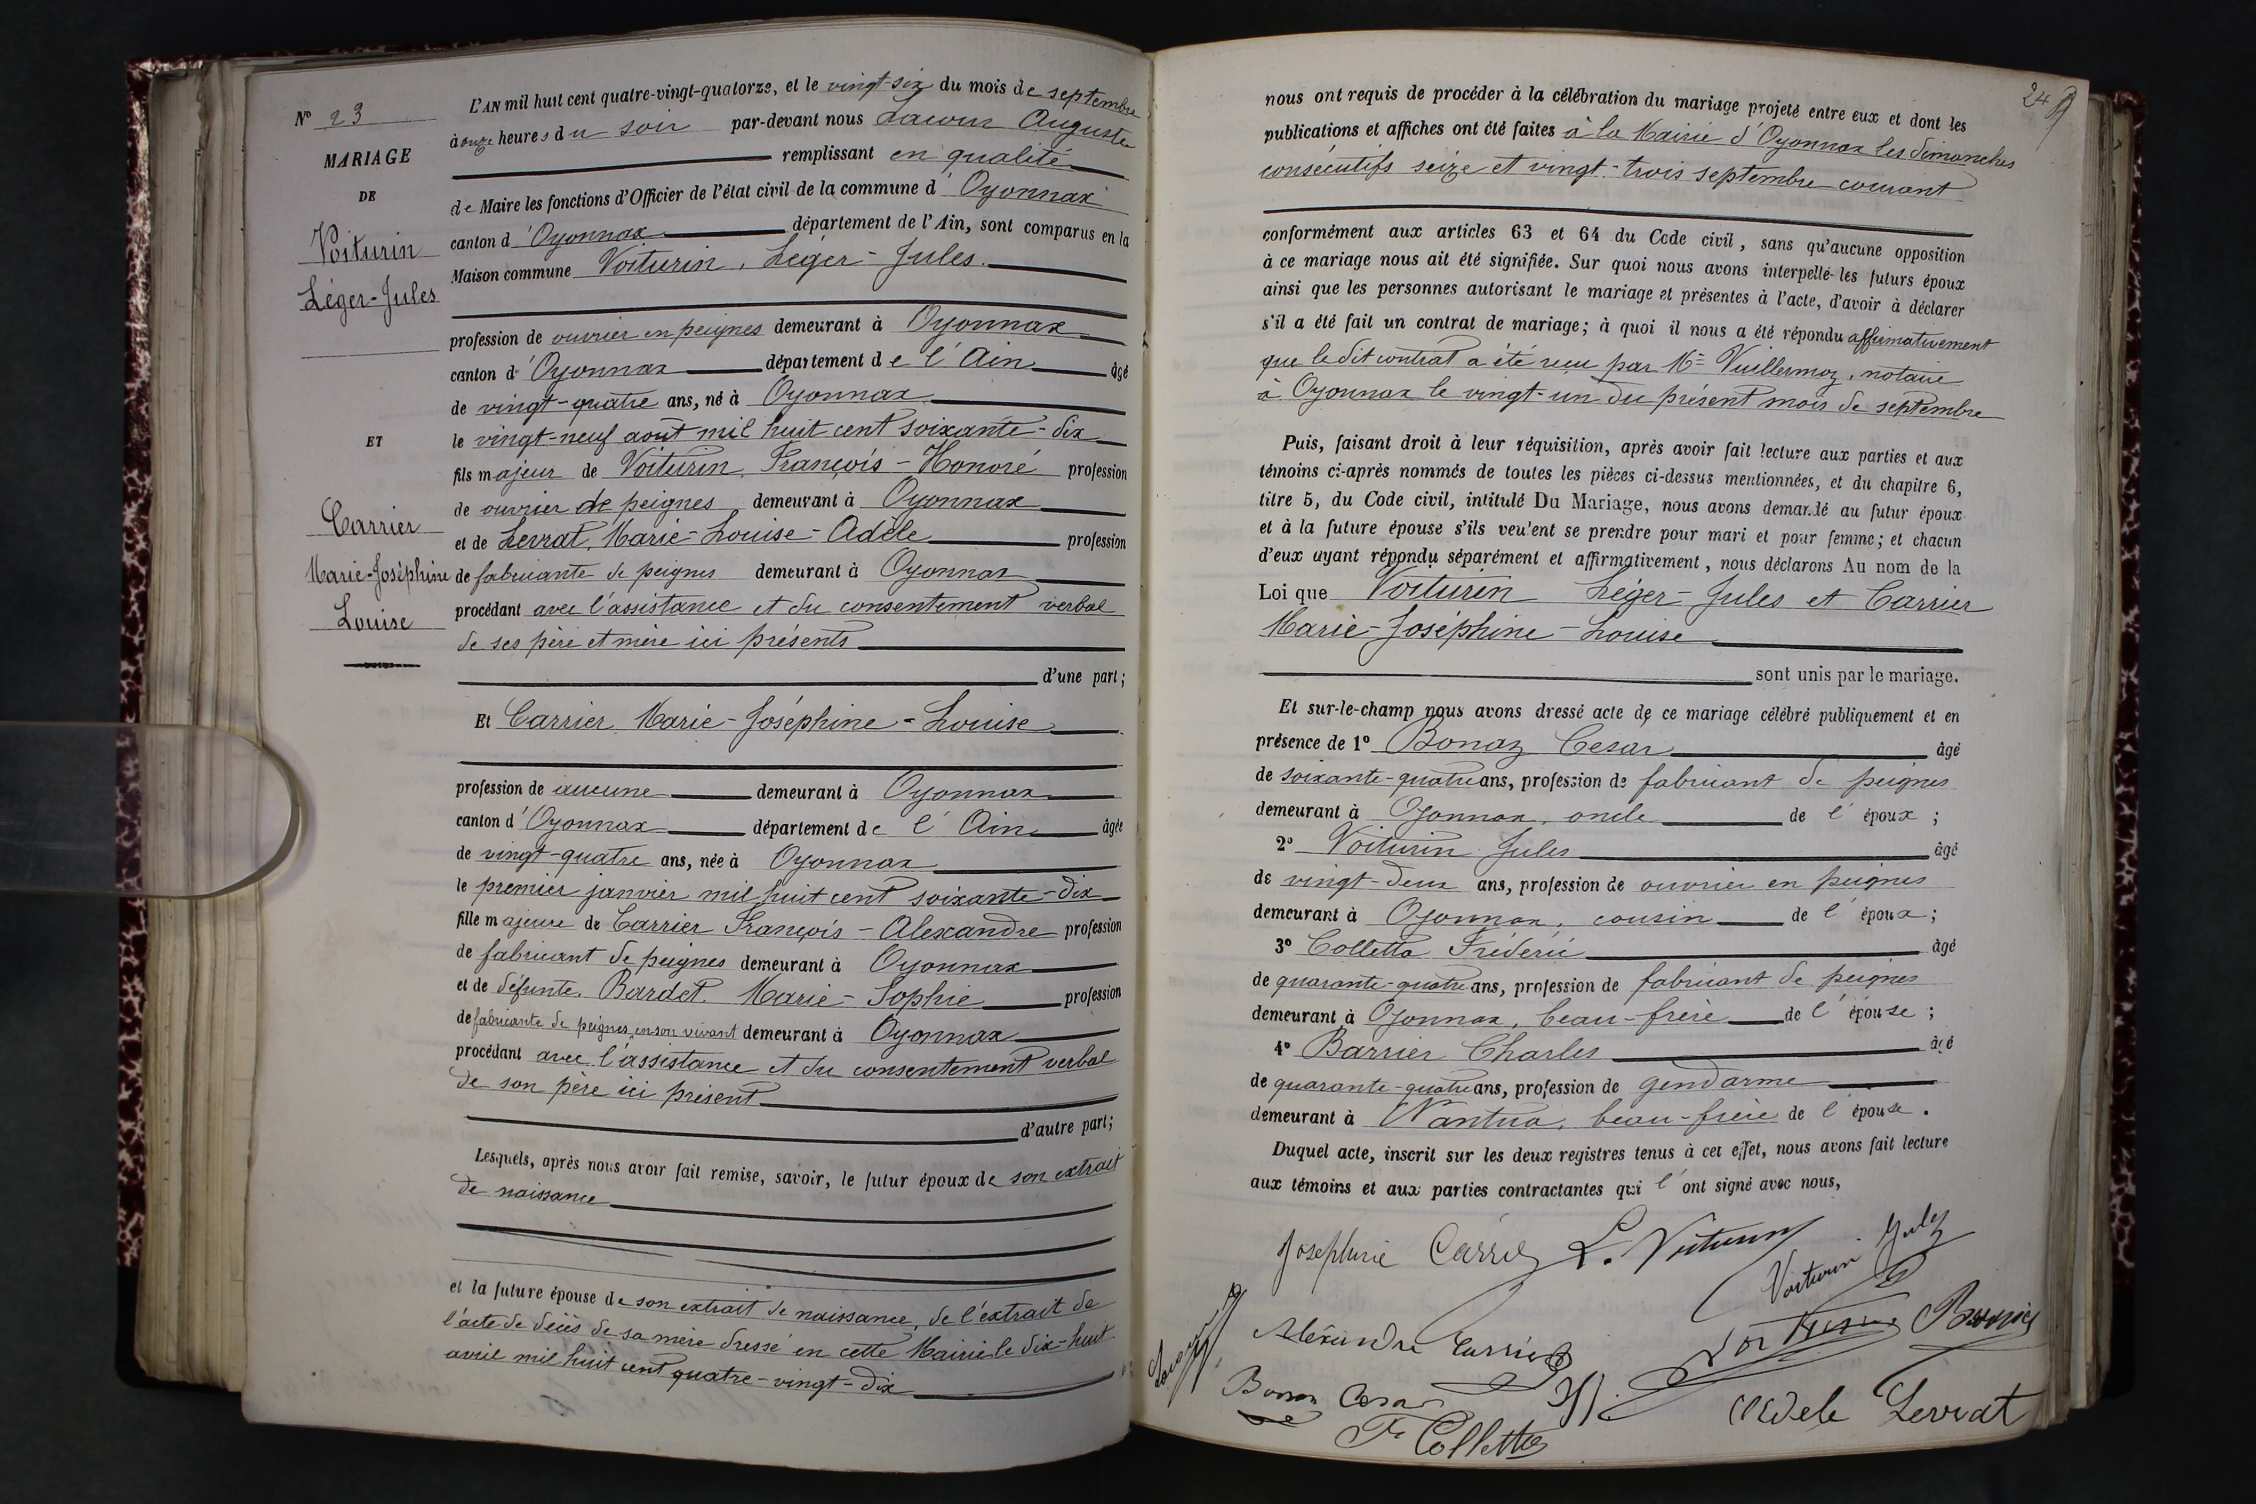 N° 23
MARIAGE
DE
Voiturin
Léger-Jules
ET
Carrier
Marie-Joséphine
Louise
L'AN mil huit cent quatre-vingt-quatorze, et le vingt-six du mois de septembre
à onze heures du soir par-devant nous Lacour Auguste
remplissant en qualité
de Maire les fonctions d'Officier de l'état civil de la commune d'Oyonnax
canton d'Oyonnax département de l'Ain, sont comparus en la
Maison commune Voiturin, Léger-Jules.
profession de ouvrier en peignes demeurant à Oyonnax
canton d'Oyonnax département de l'Ain âgé
de vingt-quatre ans, né à Oyonnax
le vingt-neuf août mil huit cent soixante-dix
fils majeur de Voiturin, François-Honoré profession
de ouvrier de peignes demeurant à Oyonnax
et de Levrat, Marie-Louise-Adèle profession
de fabricante de peignes demeurant à Oyonnax
procédant avec l'assistance et du consentement verbal
de ses père et mère ici présents
d'une part;
Et Carrier Marie-Joséphine-Louise
profession de aucune demeurant à Oyonnax
canton d'Oyonnax département de l'Ain âgée
de vingt-quatre ans, née à Oyonnax
le premier janvier mil huit cent soixante-dix
fille majeure de Carrier François-Alexandre profession
de fabricant de peignes demeurant à Oyonnax
et de défunte, Bardet Marie-Sophie profession
de fabricante de peignes en son vivant demeurant à Oyonnax
procédant avec l'assistance et du consentement verbal
de son père ici présent
d'autre part;
Lesquels, après nous avoir fait remise, savoir, le futur époux de son extrait
de naissance
et la future épouse de son extrait de naissance, de l'extrait de
l'acte de décès de sa mère dressé en cette Mairie le dix-huit
avril mil huit cent quatre-vingt-dix
24
nous ont requis de procéder à la célébration du mariage projeté entre eux et dont les
publications et affiches ont été faites à la Mairie d'Oyonnax les dimanches
consécutifs seize et vingt-trois septembre courant
conformément aux articles 63 et 64 du Code civil, sans qu'aucune opposition
à ce mariage nous ait été signifiée. Sur quoi nous avons interpellé les futurs époux
ainsi que les personnes autorisant le mariage et présentes à l'acte, d'avoir à déclarer
s'il a été fait un contrat de mariage; à quoi il nous a été répondu affirmativement
que le dit contrat a été reçu par Me Vuillermoz, notaire
à Oyonnax le vingt-un du présent mois de septembre
Puis, faisant droit à leur réquisition, après avoir fait lecture aux parties et aux
témoins ci-après nommés de toutes les pièces ci-dessus mentionnées, et du chapitre 6,
titre 5, du Code civil, intitulé Du Mariage, nous avons demandé au futur époux
et à la future épouse s'ils veulent se prendre pour mari et pour femme; et chacun
d'eux ayant répondu séparément et affirmativement, nous déclarons Au nom de la
Loi que Voiturin Léger-Jules et Carrier
Marie-Joséphine-Louise
sont unis par le mariage.
Et sur-le-champ nous avons dressé acte de ce mariage célébré publiquement et en
présence de 1° Bonaz Cesar âgé
de soixante-quatre ans, profession de fabricant de peignes
demeurant à Oyonnax, oncle de l'époux;
2° Voiturin Jules âgé
de vingt-deux ans, profession de ouvrier en peignes
demeurant à Oyonnax, cousin de l'époux;
3° Colletta Fréderic âgé
de quarante-quatre ans, profession de fabricant de peignes
demeurant à Oyonnax, beau-frère de l'épouse;
4° Barrier Charles âgé
de quarante-quatre ans, profession de gendarme
demeurant à Nantua, beau-frère de l'épouse.
Duquel acte, inscrit sur les deux registres tenus à cet effet, nous avons fait lecture
aux témoins et aux parties contractantes qui l'ont signé avec nous,
Josephine Carrier L. Voiturin
Voiturin Jules
Aléxandre Carrier
Bonaz Cesar
Adele Levrat
Fr Colletta